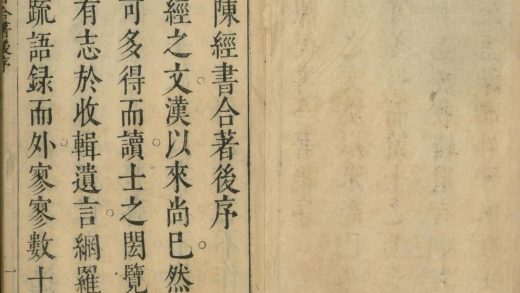 陳經書合著後序
經之文漢以來尚已。然
可多得而讀。士之閎覽
有志於收輯遺言。網羅
疏語録而外。寥寥數十
一